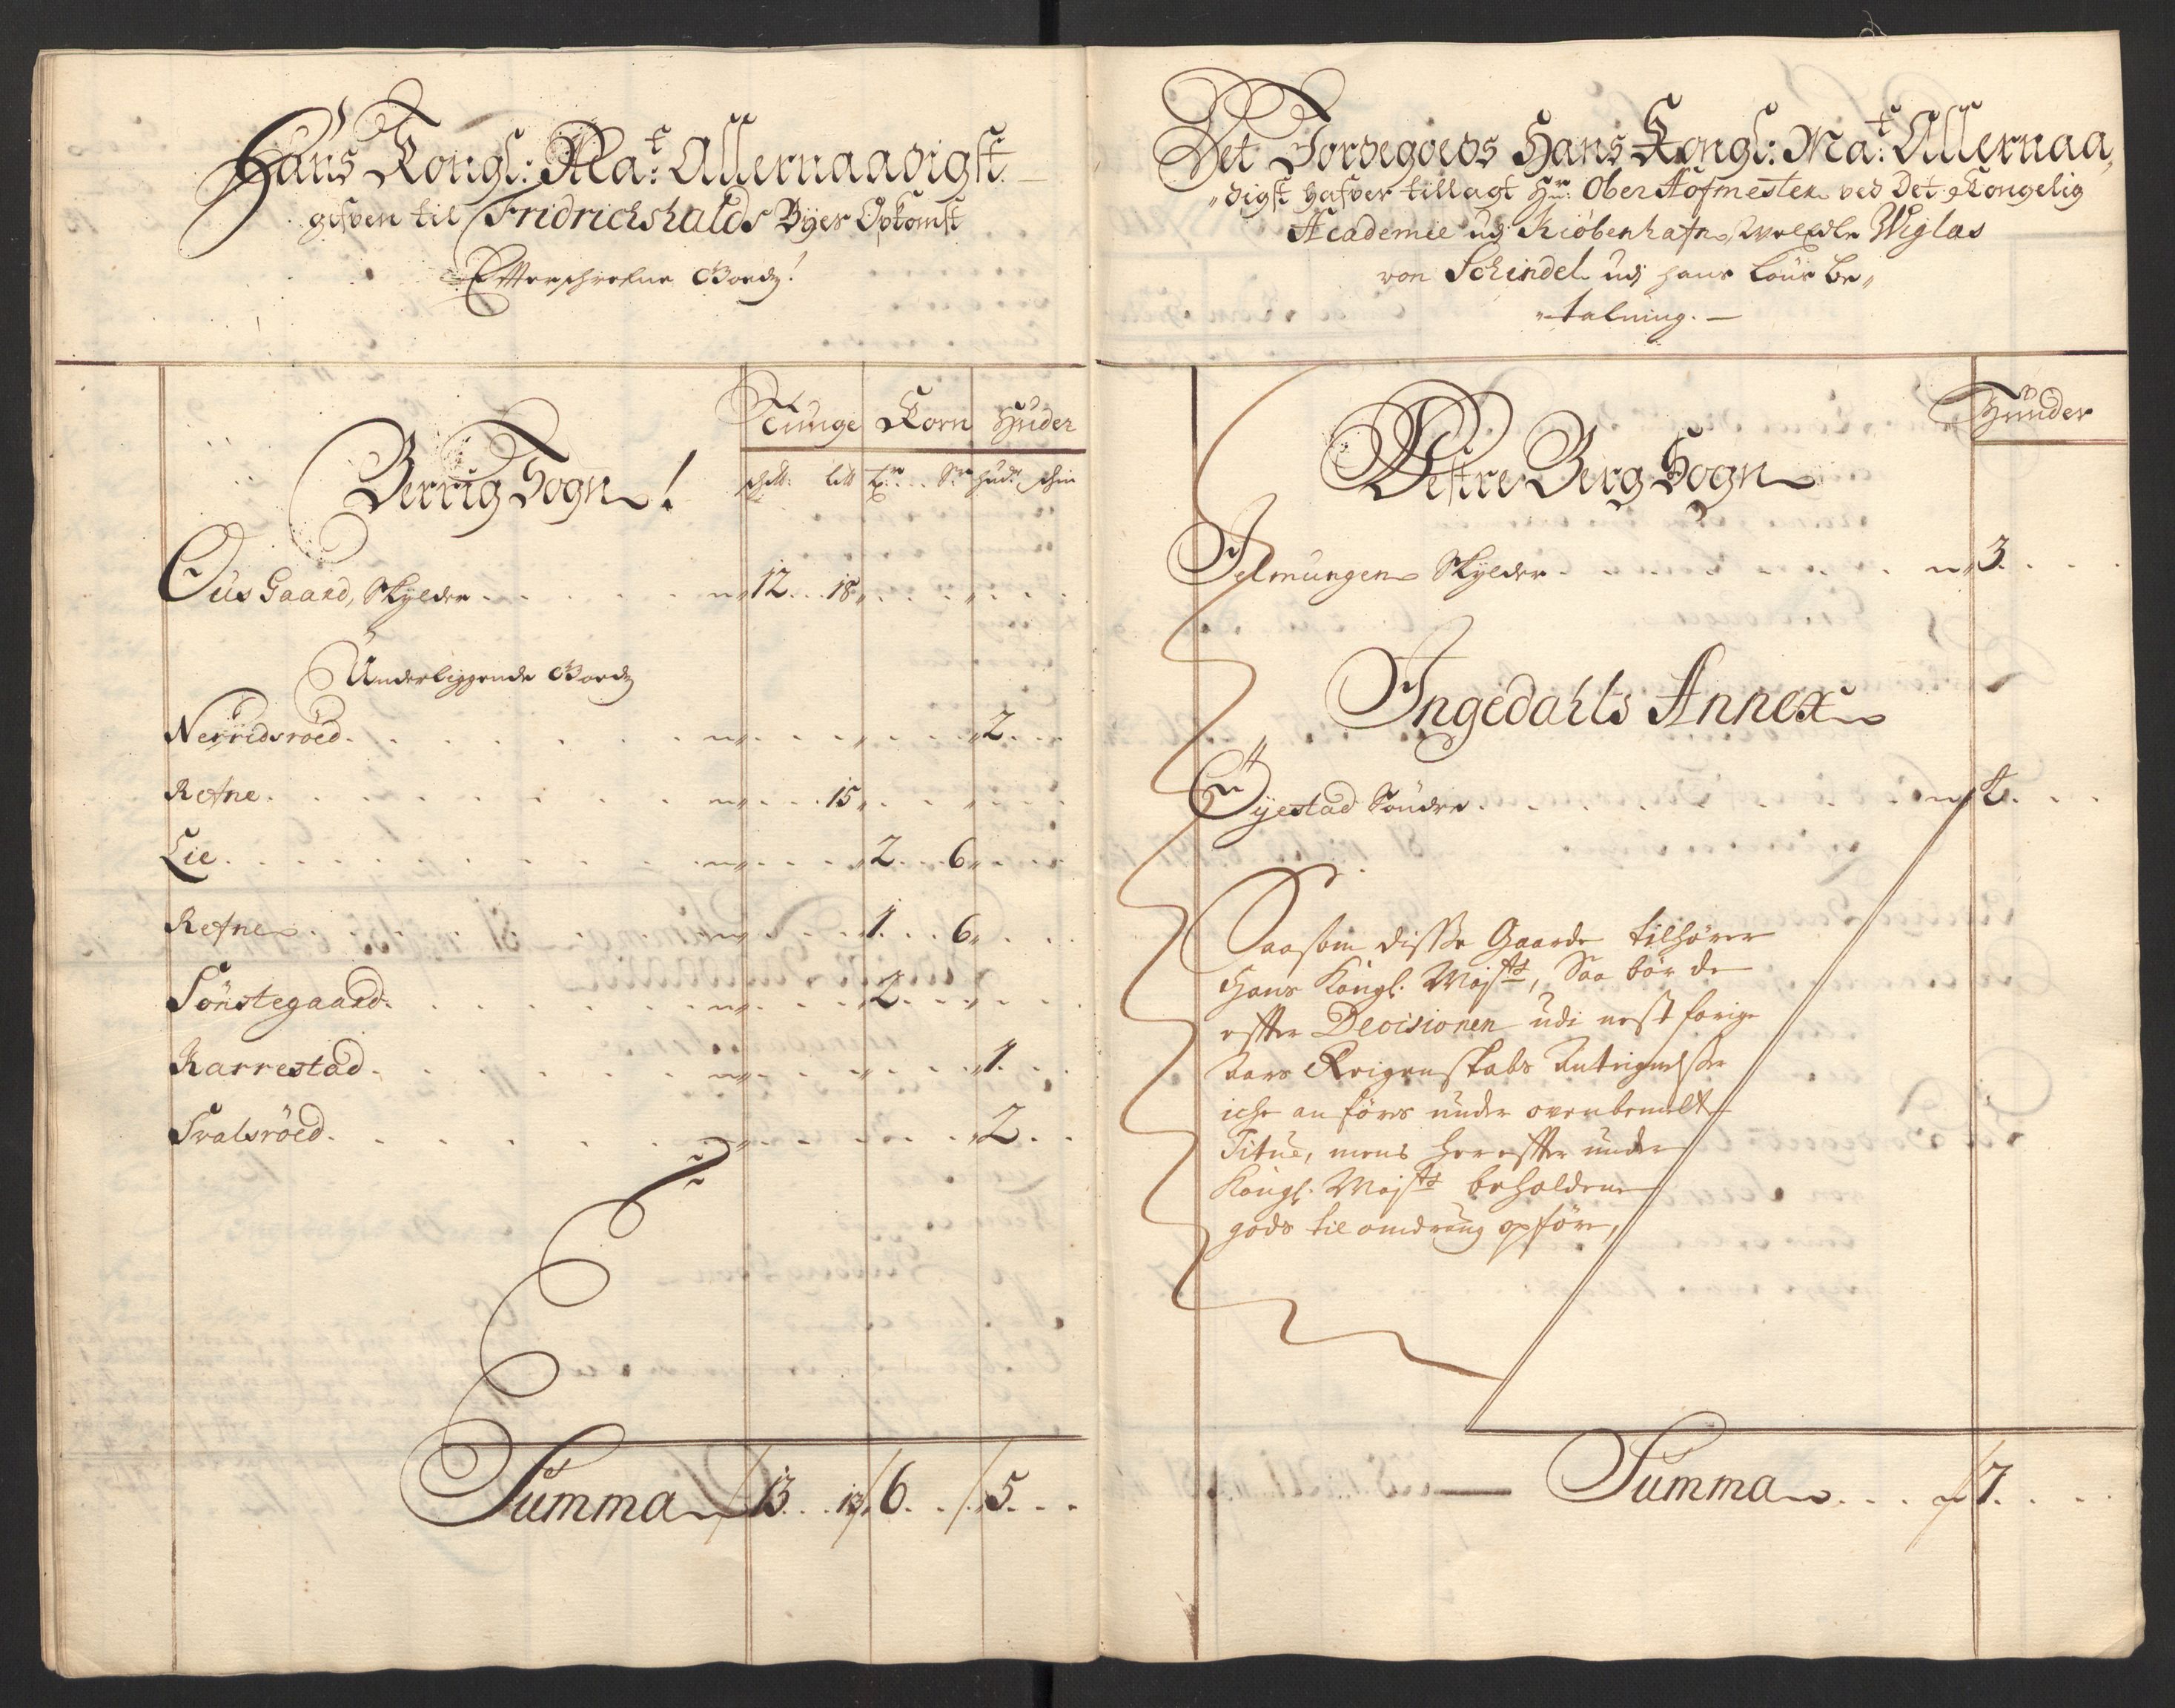 Hans Kongl: Ma:t Allernaadigst
gifven til Fridrichshalds Byes Opkomst
Efterschrefne Goedz!
Tunge Korn Huder
Berrug Sogn!
schll: litt Tr. Str. Hudr schin
Ous Gaard, Skylder 12 18
Underliggende Goedz
Nerridsröed 2
Refne 15
Lie 2 6
Refne 1 6
Sönstegaard 2
Karrestad 1
Svalsröed 2
Summa 13 13 6 5
Det Jordegoeds Hans Kongl: Ma:t Allernaa,,
,,digst hafver tillagt Hr: Ober Hofmester ved Det Kongelig
Academie udj Kiöbenhafn, Weledle Wiglas
von Schindel udj hans Löns be,,
,,talning.
Hunder
Vestre Berg Sogn
Jelmungen Skylder 3
Ingedahls Annex
Öyestad Söndre 4
Saasom disse Gaarde tilhörer
Hans Kongl: Majsts, Saa bör de
effter Decisionen udi nest forige
Aars Reigenskabs Antegnelser
iche anföres under ovenbemelte
Titul, mens her effter under
Kongl: Majsts beholdene
gods til omdrag opföre,
Summa 7